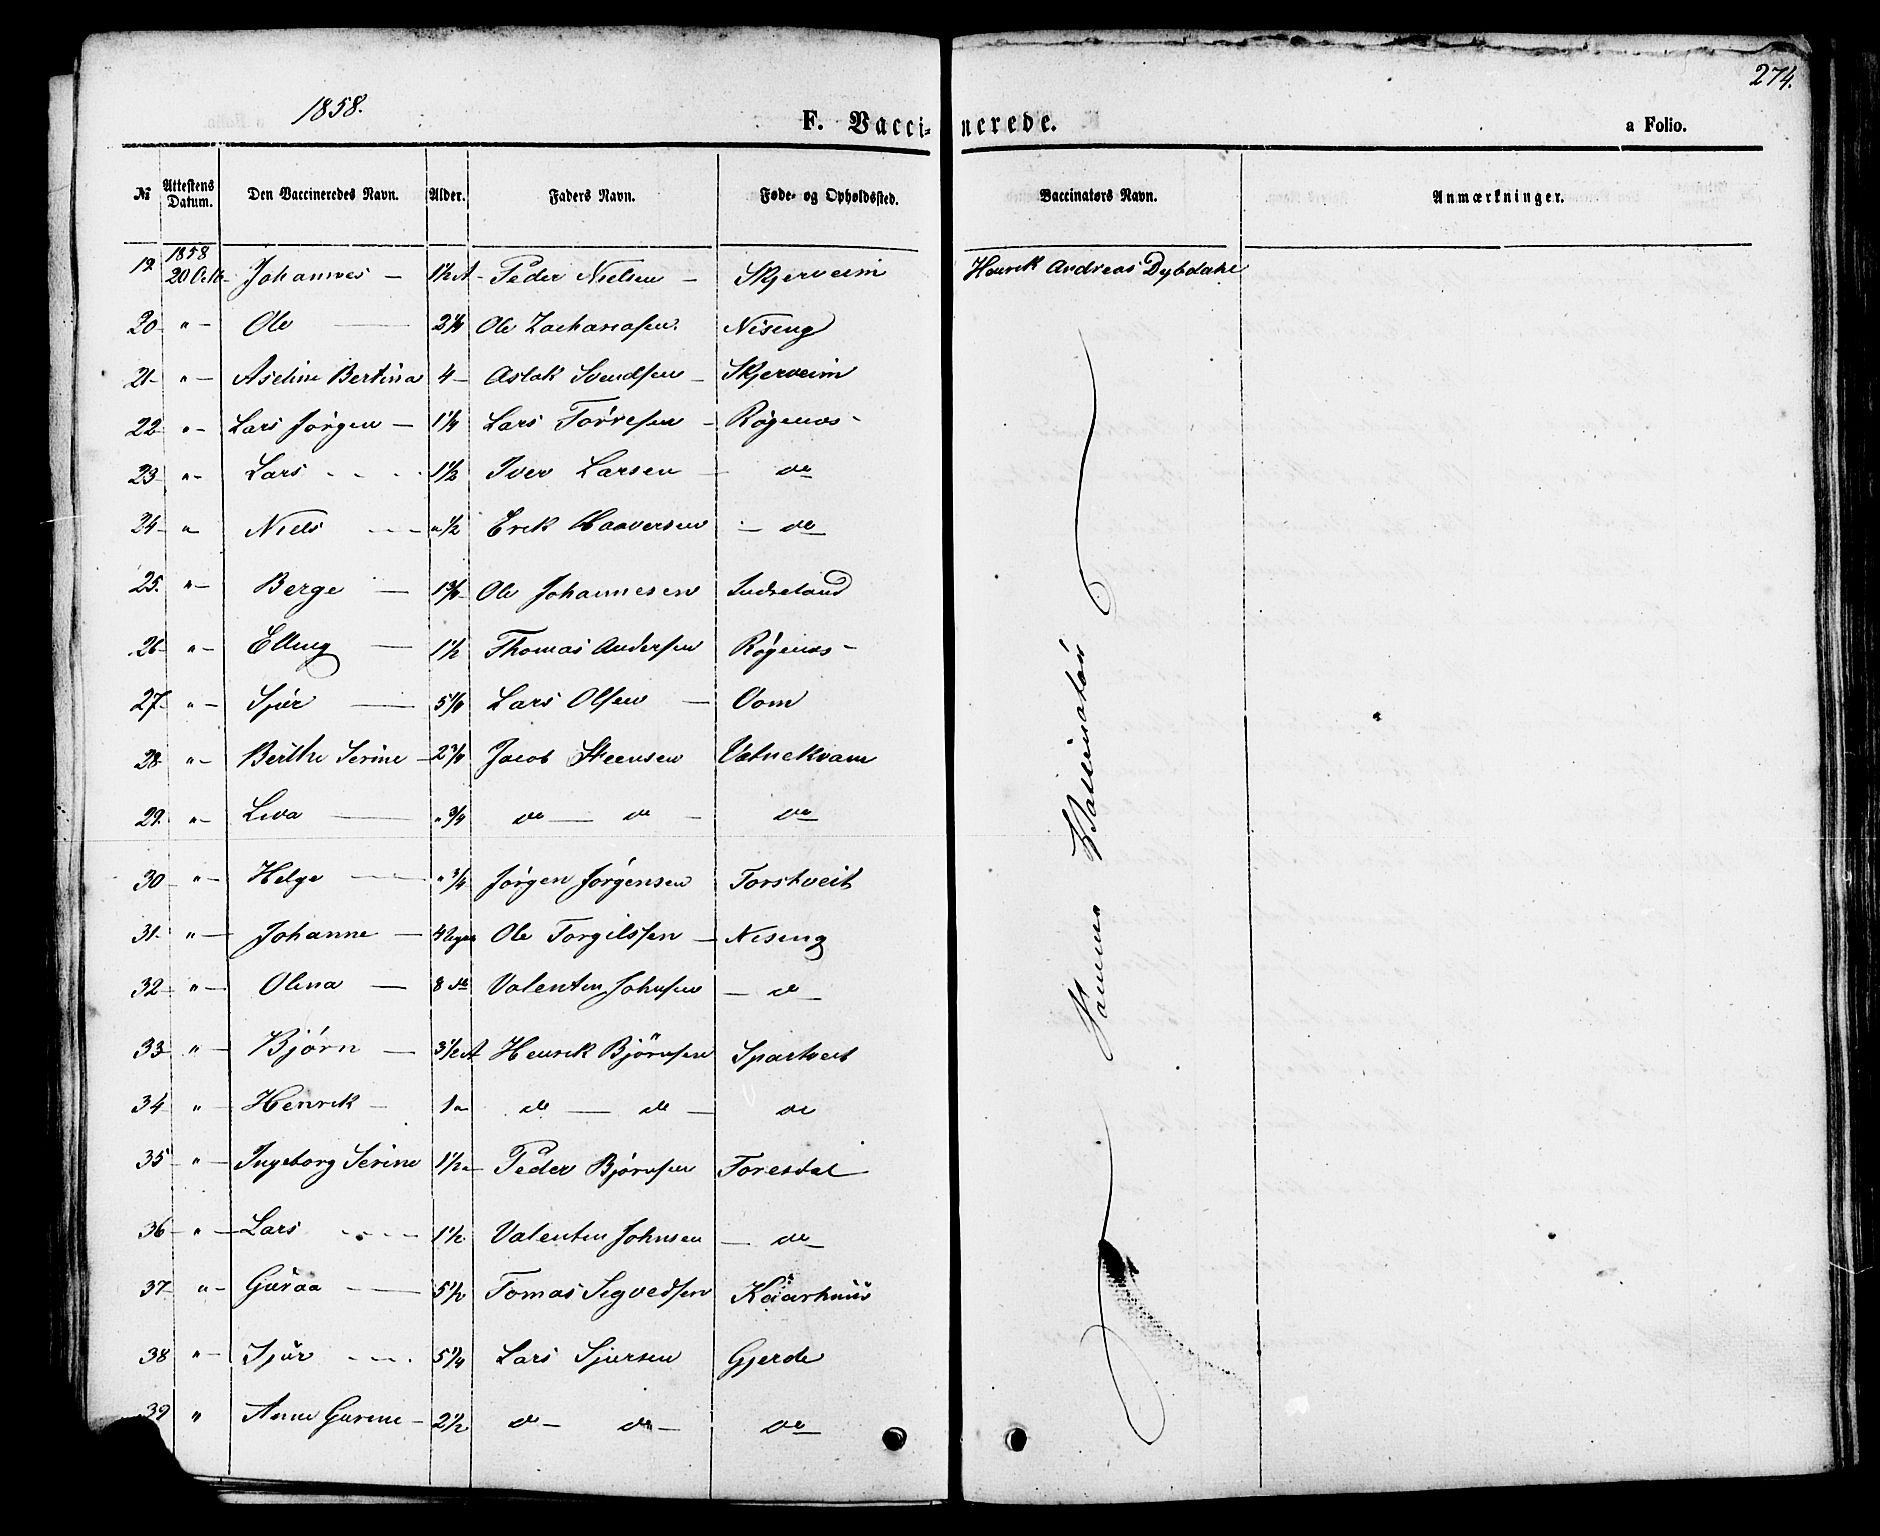 274.
1858.
F. Vaccinerede.
a Folio.
№ Attestens Datum. Den Vaccineredes Navn. Alder. Faders Navn. Føde- og Opholdssted. Vaccinators Navn. Anmærkninger.
1858
19. 20 Octb- Johannes — 1½ A- Peder Nielsen — Skjerveim Henrik Andreas Dybdahl
20- " — Ole — 2¼ Ole Zachariasen. Niseng
21- " — Aseline Bertina 4 — Aslak Svendsen — Skjerveim
22- " — Lars Jørgen — 1¼ Lars Torresen — Røgenes-
23- " — Lars - - - 1½ Iver Larsen — do
24- " Niels - - — "½ Erik Haaversen — do
25. " — Berge — Ole Johannesen Indreland
26- " — Elling — 1½ Thomas Andersen Røgenes-
27- " — Sjur — 5¼ Lars Olsen — Oom
28- " — Berthe Serine — 2¾ Jacob Steensen Vatnekvam
29. " — Liva — "¾ do — do — do
30- " — Helge — "¾ Jørgen Jørgensen Torstveit
31- " — Johanne — 4 Uger Ole Torgilssen — Niseng
32- " — Olena — 8 do Valentin Johnsen — do —
33- " — Bjørn — 3½ A Henrik Bjørnsen Spartveit
34- " — Henrik — 1 " do — do — do
35- " — Ingeborg Serine 1½ " Peder Bjørnsen Foresdal
36- " — Lars - - - 1½ Valentin Johnsen — do —
37- " — Guroa — 5½ Tomas Sigvedsen Kaarhuus
38 " — Sjur - - - 5¼ Lars Sjursen Gjerde
39 " Anne Gurine — 2½ do — do — do
Samme Vaccinatør